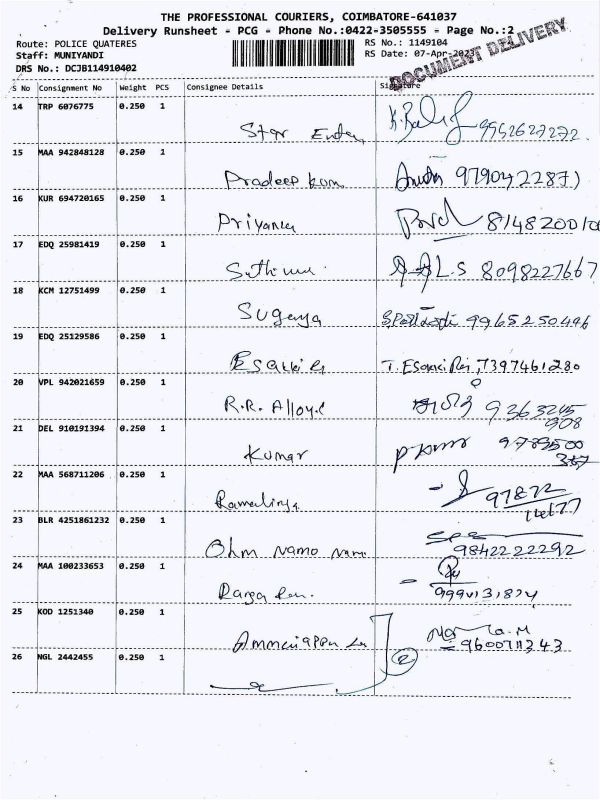 THE PROFESSIONAL COURIERS, COIMBATORE-641037
Delivery Runsheet - PCG - Phone No.:0422-3505555 - Page No.:2
Route: POLICE QUATERES
RS No.: 1149104
Staff: MUNIYANDI
RS Date: 07-Apr-2023
DRS No.: DCJB114910402
DOCUMENT DELIVERY
S No Consignment No Weight PCS Consignee Details Signature
14 TRP 6076775 0.250 1
Star 9952627272
15 MAA 942848128 0.250 1
Pradeep kum 9790422871
16 KUR 694720165 0.250 1
Priyanka
17 EDQ 25981419 0.250 1
L.S 8098227667
18 KCM 12751499 0.250 1
Suganya 9965250496
19 EDQ 25129586 0.250 1
7397461280
20 VPL 942021659 0.250 1
R.R. Alloyd 9363245
908
21 DEL 910191394 0.250 1
Kumar P Kumar
22 MAA 568711206 0.250 1
Ramalinga 97872
14177
23 BLR 4251861232 0.250 1
Ohm Namo Nama 9842222292
24 MAA 100233653 0.250 1
25 KOD 1251340 0.250 1
Ammaiappan 9600711343
26 NGL 2442455 0.250 1